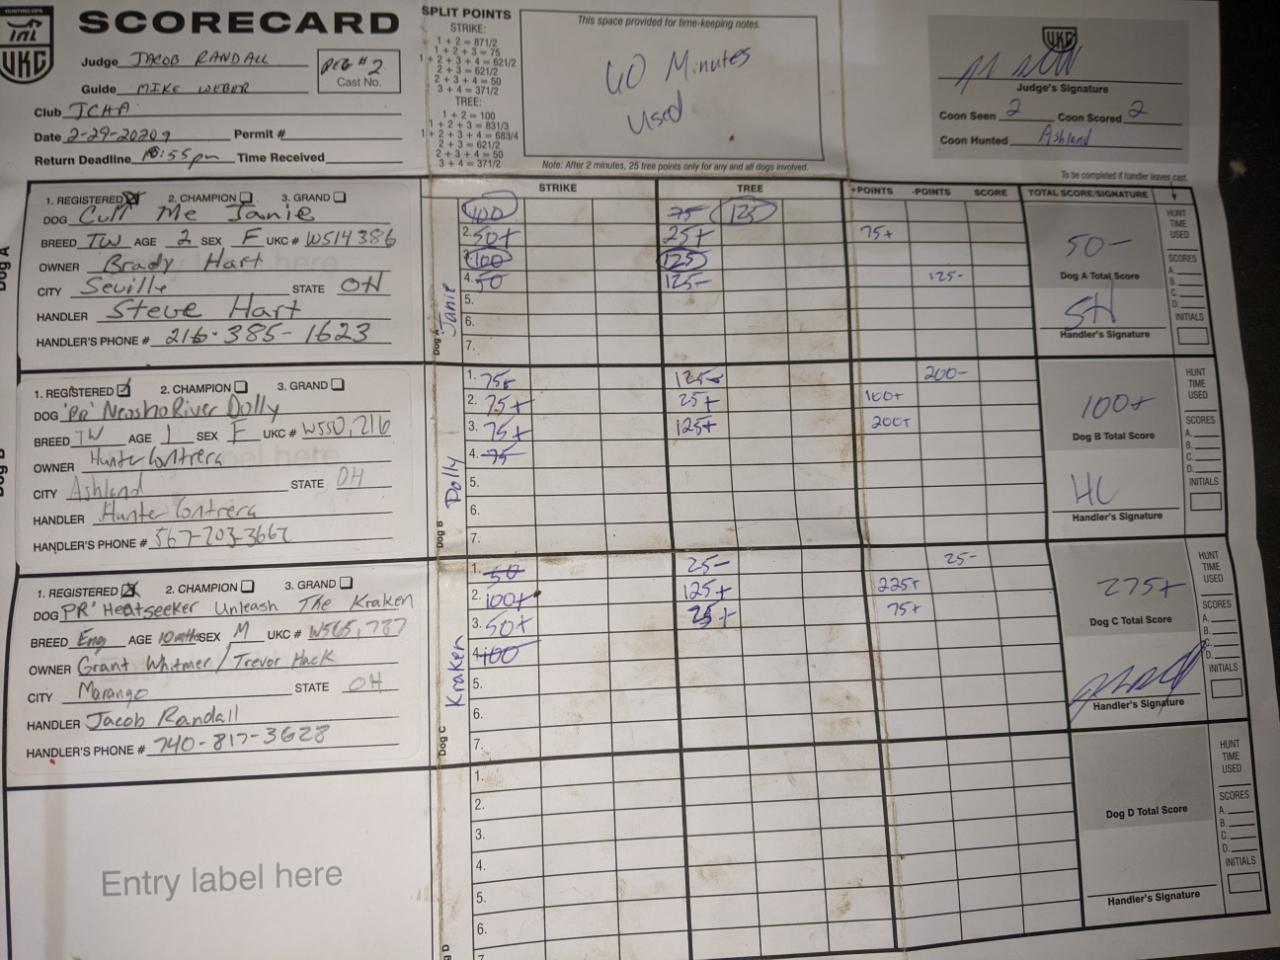 HUNTING OPS
UKC
SCORECARD
Judge JACOB RANDALL
Guide MIKE WEBER
REG #2
Cast No.
Club JCHA
Date 2-29-2020 Permit #
Return Deadline 10:55pm Time Received
SPLIT POINTS
STRIKE:
1 + 2 = 871/2
1 + 2 + 3 = 75
1 + 2 + 3 + 4 = 621/2
2 + 3 = 621/2
2 + 3 + 4 = 50
3 + 4 = 371/2
TREE:
1 + 2 = 100
1 + 2 + 3 = 831/3
1 + 2 + 3 + 4 = 683/4
2 + 3 = 621/2
2 + 3 + 4 = 50
3 + 4 = 371/2
This space provided for time-keeping notes.
60 Minutes
Used
Note: After 2 minutes, 25 tree points only for any and all dogs involved.
UKC
Judge's Signature
Coon Seen 2 Coon Scored 2
Coon Hunted Ashland
To be completed if handler leaves cast.
STRIKE TREE +POINTS -POINTS SCORE TOTAL SCORE/SIGNATURE
1. REGISTERED 2. CHAMPION 3. GRAND
DOG Cutt Me Janie
BREED TW AGE 2 SEX F UKC # W514386
OWNER Brady Hart
CITY Seville STATE OH
HANDLER Steve Hart
HANDLER'S PHONE # 216-385-1623
Dog A
Janie
100 75 125
2. 50+ 25+ 75+
3. 100 125
4. 50 125- 125-
5.
6.
7.
50-
Dog A Total Score
SH
Handler's Signature
HUNT
TIME
USED
SCORES
A.
B.
C.
D.
INITIALS
1. REGISTERED 2. CHAMPION 3. GRAND
DOG 'PR' Neosho River Dolly
BREED TW AGE 1 SEX F UKC # W550,216
OWNER Hunter Contrera
CITY Ashland STATE OH
HANDLER Hunter Contrera
HANDLER'S PHONE # 567-203-3667
Dog B
Dolly
1. 75- 125- 200-
2. 75+ 25+ 100+
3. 75+ 125+ 200+
4. 75
5.
6.
7.
100+
Dog B Total Score
HC
Handler's Signature
HUNT
TIME
USED
SCORES
A.
B.
C.
D.
INITIALS
1. REGISTERED 2. CHAMPION 3. GRAND
DOG 'PR' Heatseeker Unleash The Kraken
BREED Eng AGE 10 mths SEX M UKC # W565,787
OWNER Grant Whitmer / Trevor Hack
CITY Marango STATE OH
HANDLER Jacob Randall
HANDLER'S PHONE # 740-817-3628
Dog C
Kraken
1. 50 25- 25-
2. 100+ 125+ 225+
3. 50+ 25+ 75+
4. 100
5.
6.
7.
275+
Dog C Total Score
Handler's Signature
HUNT
TIME
USED
SCORES
A.
B.
C.
D.
INITIALS
Entry label here
1.
2.
3.
4.
5.
6.
7.
Dog D Total Score
Handler's Signature
HUNT
TIME
USED
SCORES
A.
B.
C.
D.
INITIALS